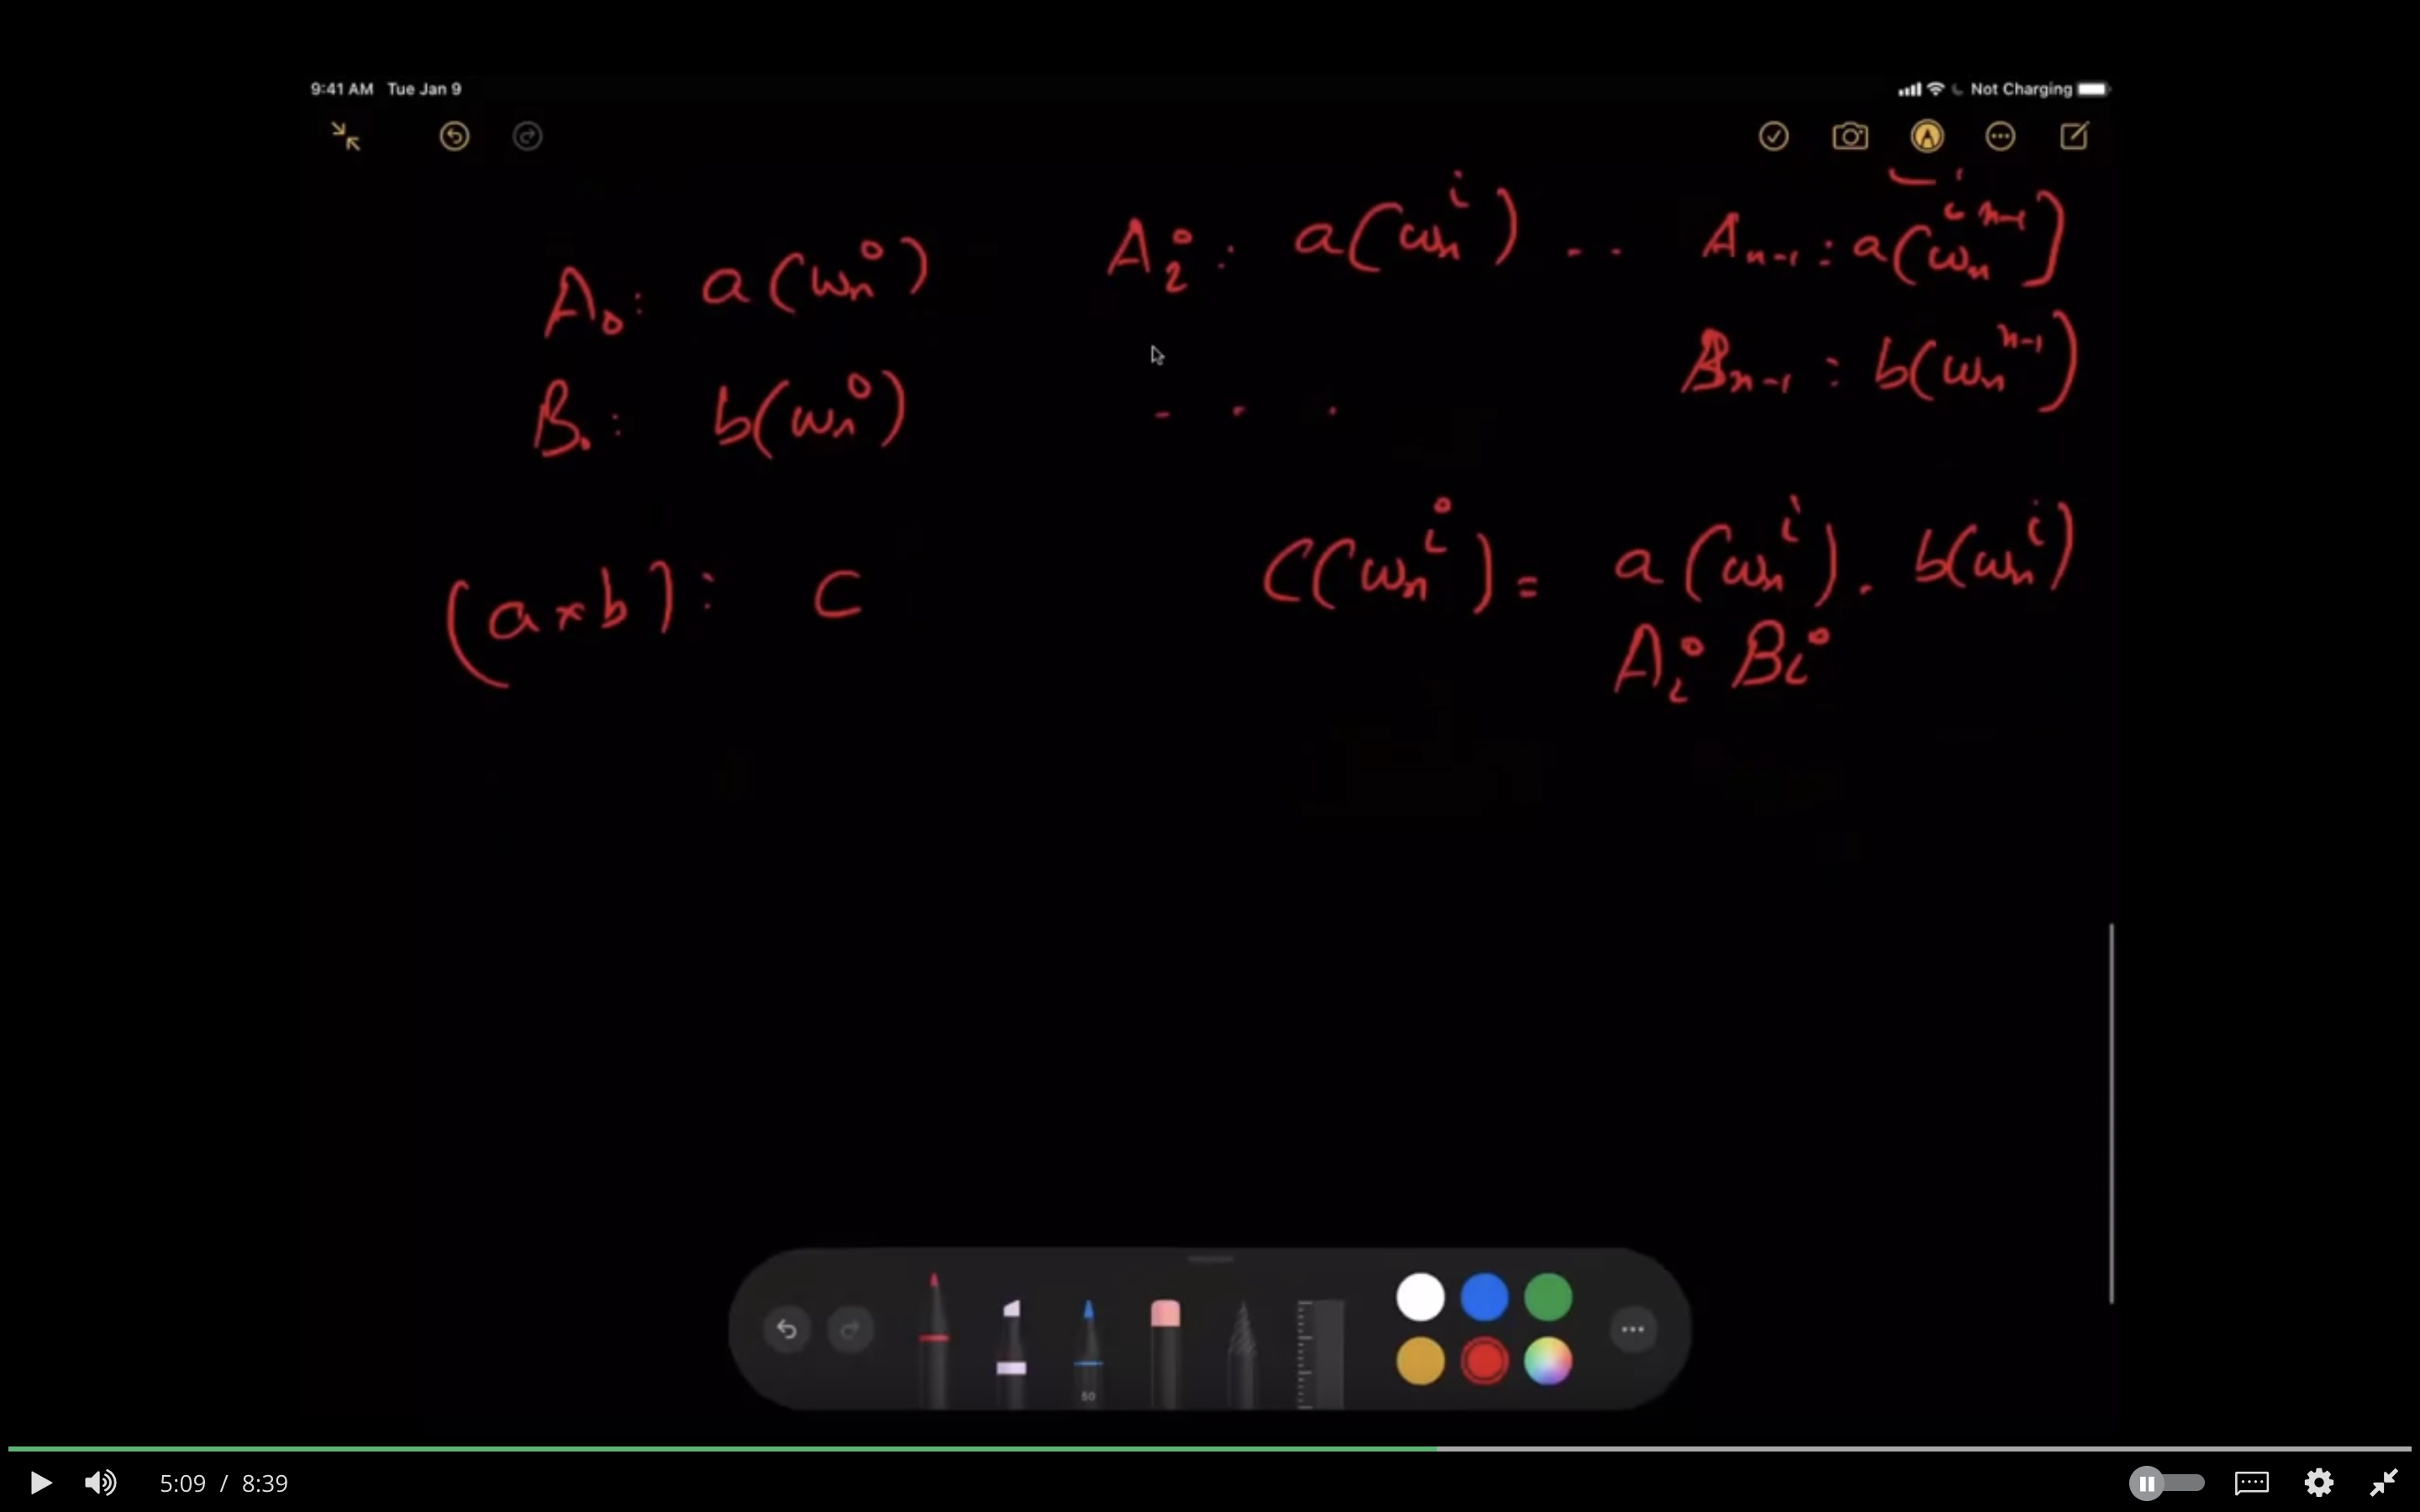 9:41 AM Tue Jan 9 Not Charging
A₀ : a(ωₙ⁰) A᎐₂ : a(ωₙⁱ) .. Aₙ₋₁ : a(ωₙⁿ⁻¹)
B₀ : b(ωₙ⁰) - . . Bₙ₋₁ : b(ωₙⁿ⁻¹)
(a×b) : C C(ωₙⁱ) = a(ωₙⁱ) . b(ωₙⁱ)
Aᵢ Bᵢ
50
5:09 / 8:39